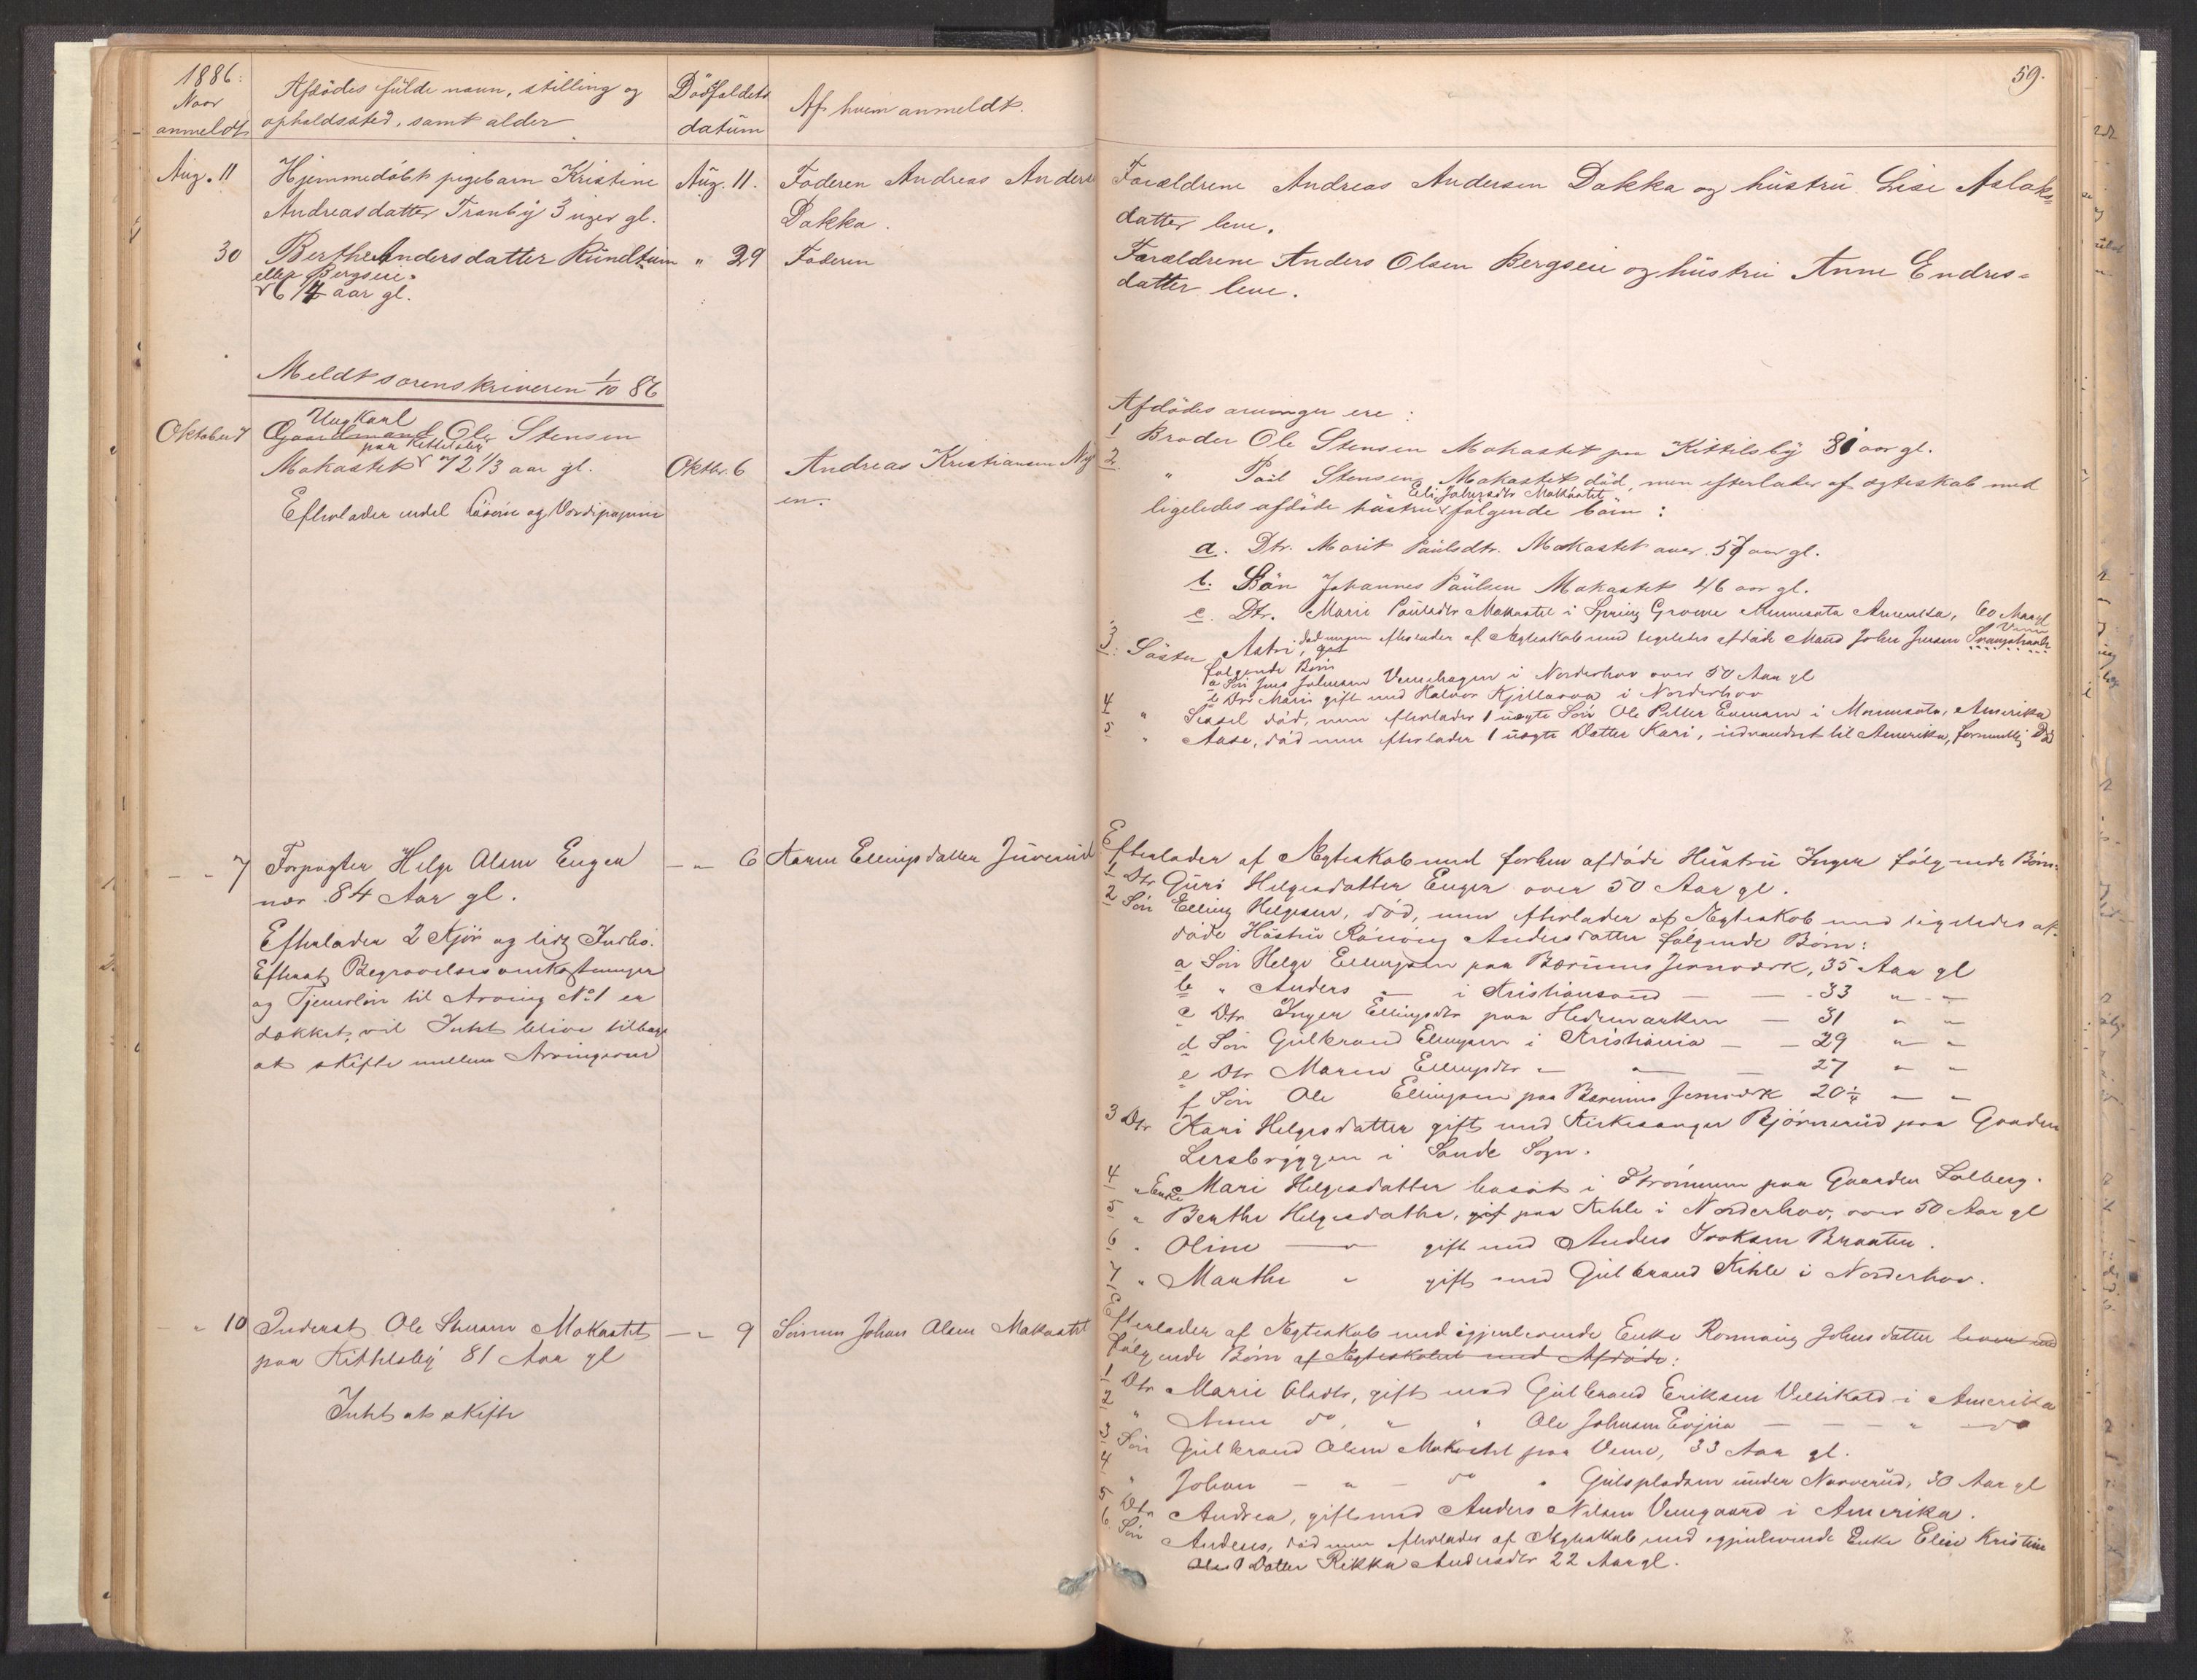 1886:
Naar
anmeldt
Afdödes fulde navn, stilling og
opholdssted, samt alder
Dödsfaldets
datum
Af hvem anmeldt.
59.
Aug. 11
Hjemmedöbt pigebarn Kristine
Andreasdatter Tranby 3 uger gl.
Aug. 11.
Faderen Andreas Anders
Dakka.
Forældrene Andreas Andersen Dakka og hustru Lise Aslaks=
datter leve.
30
Berthe Andersdatter Rundtum
eller Bergseie.
6 1/4 aar gl.
" 29
Faderen
Forældrene Anders Olsen Bergseie og hustru Anne Endres=
datter leve.
Meldt sorenskriveren 1/10 86
Oktober 7
Ungkarl
Gaardmand Ole Stensen
paa Kittelsby
Makastet 72 1/3 aar gl.
Efterlader endel Løsøre og Værdipapirer
Oktbr. 6
Andreas Kristiansen
en.
Afdödes arvinger ere:
1 Broder Ole Stensen Makastet paa Kittilsby 81 aar gl.
2 " Paul Stensen Makastet död, men efterlader af ægteskab med
Eli Johnsdtr Makastet
ligeledes afdöde hustru følgende børn:
a. Dtr. Marit Paulsdtr. Makastet over 57 aar gl.
b. Sön Johannes Paulsen Makastet 46 aar gl.
c. Dtr. Marie Paulsdtr Makastet i Spring Growe Minnesota Amerika, 60 Aar gl
3: Søster Astri, død men efterlader af Ægteskab med ligeledes afdøde Mand John Jensen
følgende Børn
a Søn Jens Johnsen Vennehagen i Norderhov over 50 Aar gl
b Dtr Mari gift med Halvor i Norderhov
4 " Sissel død, men efterlader 1 uægte Søn Ole Petter Evensen i Minnesota, Amerika
5 " Aase, død men efterlader 1 uægte Datter Kari, udvandret til Amerika, formentlig Død
- " 7
Forpagter Helge Olsen Enger
nær 84 Aar gl.
Efterlader 2 Kjør og lidt Indbo.
Efterat Begravelsesomkostninger
og Tjenerløn til Arving No 1 er
dækket, vil Intet blive tilbage
at skifte mellem Arvingerne
- " 6
Maren Ellingsdatter Juverud
Efterlader af Ægteskab med forhen afdøde Hustru Inger følgende Børn:
1 Dtr Guri Helgesdatter Enger over 50 Aar gl.
2 Søn Elling Helgesen, død, men efterlader af Ægteskab med ligeledes af-
døde Hustru Rønnaug Andersdatter følgende Børn:
a Søn Helge Ellingsen paa Bærums Jernværk, 35 Aar gl
b " Anders " i Kristiansand — — 33 " "
c Dtr Inger Ellingsdtr paa Hedemarken — 31 " "
d Søn Gulbrand Ellingsen i Kristiania — — 29 " "
e Dtr Maren Ellingsdtr " " — 27 " "
f Søn Ole Ellingsen paa Bærums Jernværk 20 1/4 " "
3 Dtr Kari Helgesdatter gift med Kirkesanger Bjørnerud paa Gaarden
Lersbryggen i Sande Sogn.
4 " Enke Mari Helgesdatter bosat i Strømmen paa Gaarden Solberg.
5 " Berthe Helgesdatter, gift paa Kihle i Norderhov, over 50 Aar gl
6 " Oline — " — gift med Anders Isaksen Braaten.
7 " Marthe " gift med Gulbrand Kihle i Norderhov.
- " 10
Inderst Ole Stensen Makastet
paa Kittilsby 81 Aar gl
Intet at skifte
- " 9
Sønnen Johan Olsen Makastet
Efterlader af Ægteskab med igjenlevende Enke Rønnaug Johnsdatter
følgende Børn af Ægteskabet med Afdøde:
1 Dtr Marie Olsdtr, gift med Gulbrand Eriksen Velikold i Amerika
2 " Anne do, " " Ole Johnsen Evjua — — " — do
3 Søn Gulbrand Olsen Makastet paa Veme, 33 Aar gl.
4 " Johan — " — do " Gulspladsen under Narverud, 30 Aar gl
5 Dtr Andrea, gift med Anders Nilsen Vemgaard i Amerika.
6 Søn Anders, død men efterlader af Ægteskab med igjenlevende Enke Elise Kristine
1 Datter Rikka Andersdtr 22 Aar gl.